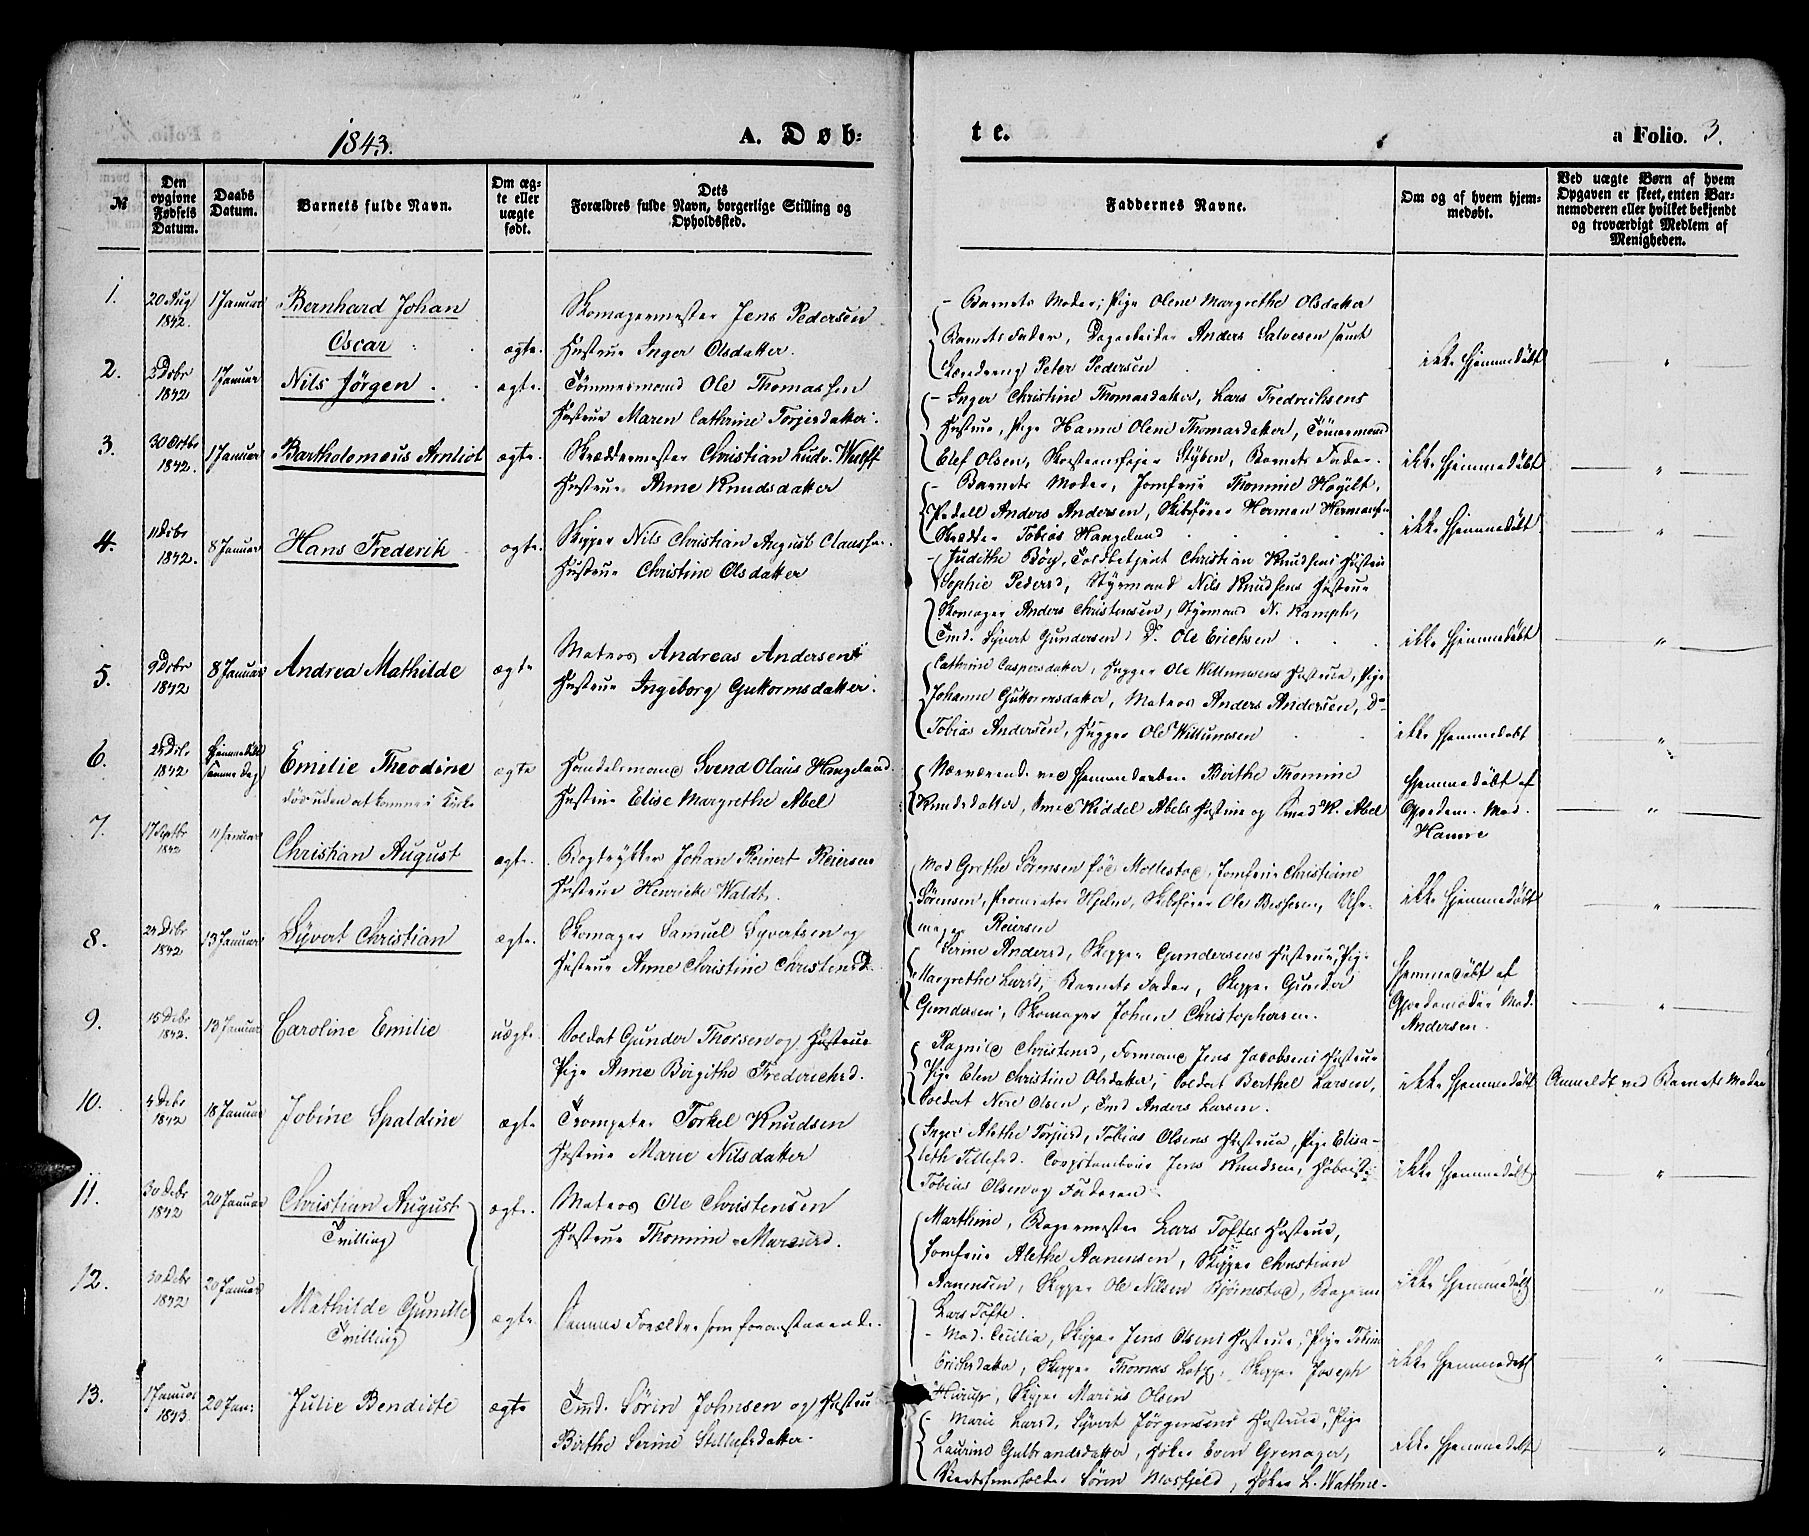 1843.
A. Døb:
te.
a Folio. 3.
№
Den opgivne Fødsels Datum.
Daabs Datum.
Barnets fulde Navn.
Om ægte eller uægte født.
Dets
Forældres fulde Navn, borgerlige Stilling og
Opholdssted.
Faddernes Navne.
Om og af hvem hjemmedøbt.
Ved uægte Børn af hvem
Opgaven er skeet, enten Barnemoderen eller hvilket bekjendt
og troværdigt Medlem af
Menigheden.
1.
20 Aug 1842.
1 Januar
Bernhard Johan
Oscar
ægte.
Skomagermester Jens Pedersen
Hustrue Inger Olsdatter.
Barnets Moder, Pige Olene Margrethe Olsdatter
Barnets Fader, Dagarbeider Anders Salvesen samt
Læredreng Peter Pedersen
ikke hjemmedøbt
2.
Dcbr 1842
1 Januar
Nils Jörgen
ægte.
Tömmermand Ole Thomassen
Hustrue Maren Cathrine Torjersdatter.
Inger Christine Thomasdatter, Lars Fredriksens
Hustrue, Pige Hanne Olene Thomasdatter, Tömmermand
Elef Olsen, Skorsteensfeier Styben, Barnets Fader.
ikke hjemmedøbt
3.
30 Octbr 1842.
1 Januar
Bartholomæus Arnliot
ægte.
Skrædermester Christian Ludv. Wulff
Hustrue Anne Knudsdatter
Barnets Moder, Jomfrue Thomine Høyelt,
Pedell Anders Andersen, Skibsfører Herman Hermansen
Skrædder Tobias Hangeland
ikke hjemmedøbt
4.
11 Dcbr 1842.
8 Januar
Hans Frederik
ægte.
Skipper Nils Christian August Claussen.
Hustrue Christine Olsdatter
Judithe Böry, Toldbetjent Christian Knudsens Hustrue
Sophie Pedersd, Styrmand Nils Knudsens Hustrue
Skomager Anders Christensen, Styrmand N. Kamph,
Tmd. Syvert Gundersen, D. Ole Erichsen
ikke hjemmedøbt
5.
9 Dcbr 1842
8 Januar
Andrea Mathilde
ægte
Matros Andreas Andersen
Hustrue Ingeborg Guttormsdatter.
Cathrine Caspersdatter, Hugger Ole Willumsens Hustrue, Pige
Johanne Guttormsdatter, Matros Anders Andersen, Do
Tobias Andersen, Hugger Ole Willumsen
ikke hjemmedøbt
6.
Dcbr 1842
hjemmedøbt samme dag
Emilie Theodine
døde uden at komme i Kirke
ægte
Handelsmand Svend Olaus Hangeland.
Hustrue Elise Margrethe Abel
Nærværende ved Hjemmedaaben Birthe Thomine
Knudsdatter, Smed Riddel Abels Hustrue og Smed R. Abel
Hjemmedøbt af
Gjordem. Mad.
Hamre
7.
17 Septbr 1842
11 Januar
Christian August
ægte.
Bogtrykker Johan Reinert Reiersen
Hustrue Henricke Waldt.
Mad Grethe Sörensen föd Mollestad, Jomfrue Christiane
Sörensen, Procurator Hjelm, Skibsfører Ole Bessesen, Uhrmager Reiersen
ikke hjemmedøbt
8.
Dcbr 1842
13 Januar
Syvert Christian
ægte.
Skomager Samuel Syvertsen og
Hustrue Anne Christine Christensd.
Serine Andersd, Skipper Gundersens Hustrue, Pige
Margrethe Larsd, Barnets Fader, Skipper Gunder
Gundersen, Skomager Johan Christophersen.
Hjemmedøbt af
Gjordemoder Mad.
Andersen.
9.
15 Dcbr 1842.
13 Januar
Caroline Emilie
uægte.
Soldat Gunder Thorsen og Hustrue
Pige Anne Birgithe Frederichsd.
Ragnild Christensd, Formand Jens Jacobsens Hustrue
Pige Elen Christine Olsdatter, Soldat Berthel Larsen,
Soldat Nere Olsen, Tmd Anders Larsen.
ikke hjemmedøbt
Anmeldt ved Barnets Moder
10.
Dcbr 1842
18 Januar
Jobine Spaldine
ægte
Trompeter Torkel Knudsen
Hustrue Marie Nilsdatter
Inger Alethe Torjusd, Tobias Olsens Hustrue, Pige Elisabeth Tellefsd. Jens Knudsen,
Tobias Olsen og Faderen
ikke hjemmedøbt
11.
30 Dcbr 1842
20 Januar
Christian August
Tvilling
ægte.
Matros Ole Christensen
Hustrue Thomine Marcusd.
Marthine, Bagermester Lars Toftes Hustrue,
Jomfrue Alethe Aanensen, Skipper Christian
Aanensen, Skipper Ole Nilsen Bjørnestad, Bagerm
Lars Tofte.
ikke hjemmedøbt
12.
30 Dcbr 1842
20 Januar
Mathilde Gunille
Tvilling
ægte.
Samme Forældre som foranstaaende.
Mad. Cecilia, Skipper Jens Olsens Hustrue, Pige Tobine
Erichsdatter, Skipper Thomas Lotz, Skipper Joseph
Hurup, Skipper Marius Olsen
ikke hjemmedøbt
13.
1 Januar 1843.
20 Jan:
Julie Bendicte
ægte
Tmd. Sörin Johnsen og Hustru
Birthe Serine Stillefsdatter.
Marie Larsd, Syvert Jörgensens Hustrue, Pige
Laurine Gulbrandsdatter, Høker Even Grenager,
Værtshuusholder Sören Mosfjeld, Høker L. Wattne.
ikke hjemmedøbt